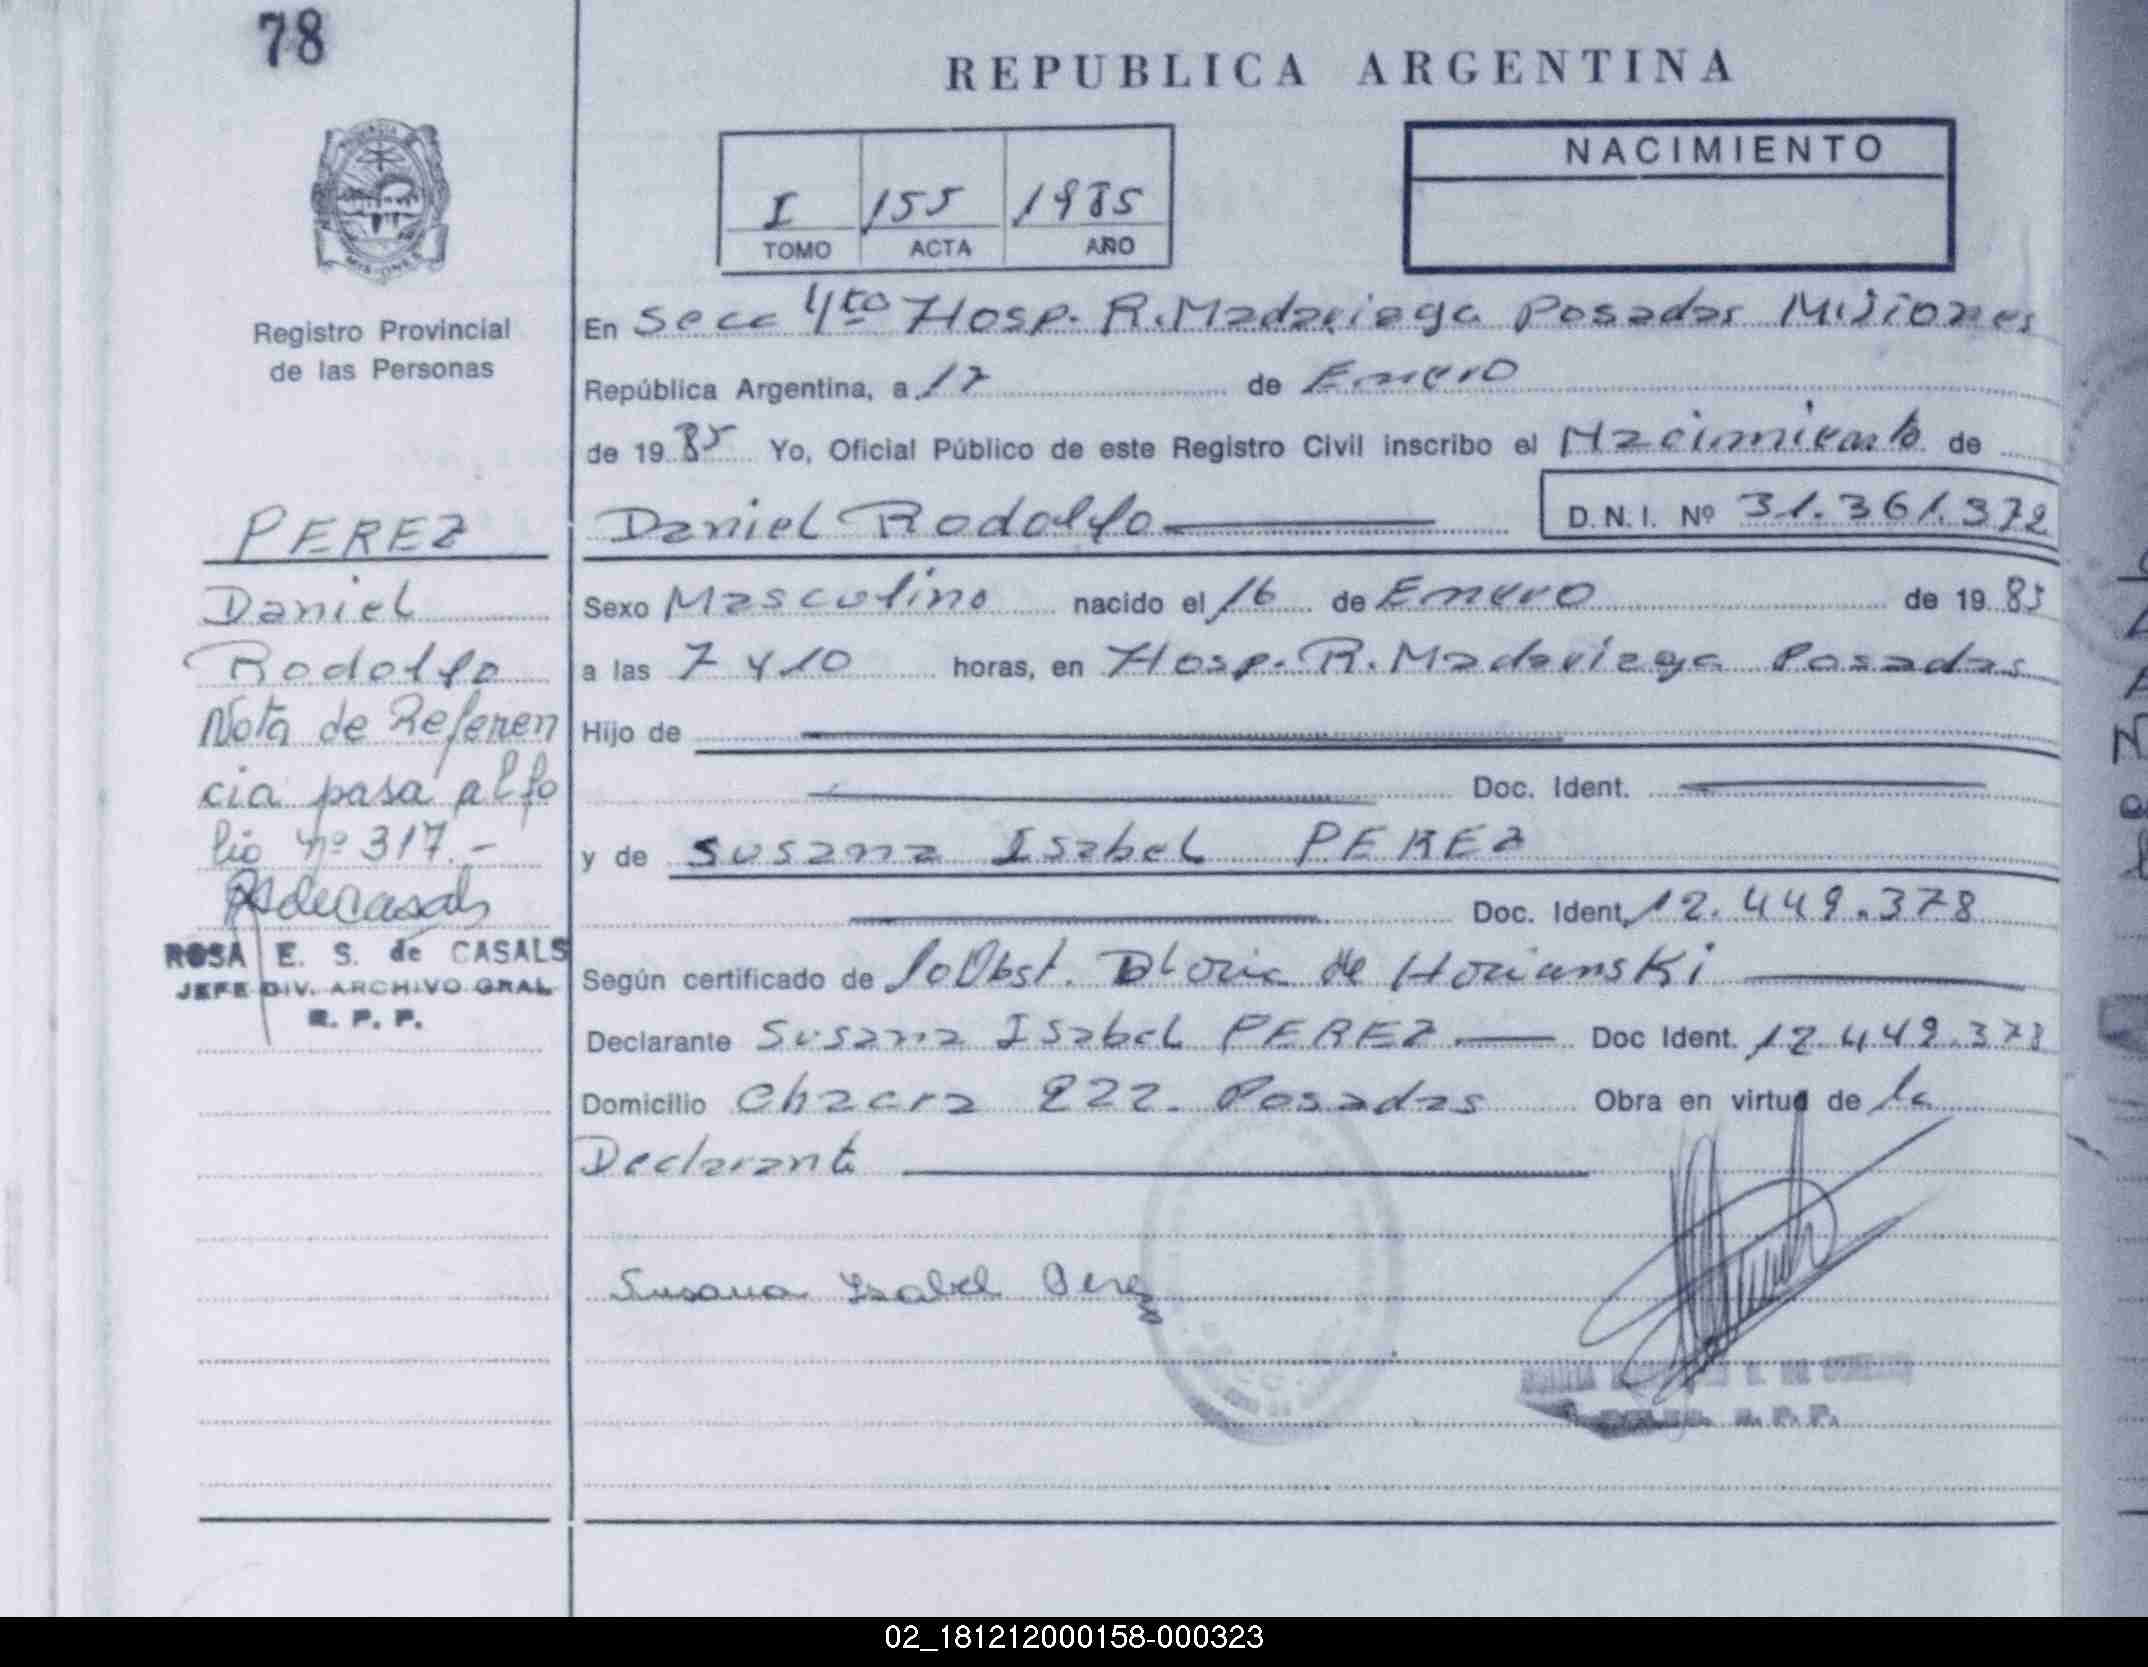 78
REPUBLICA ARGENTINA
I 155 1985
TOMO ACTA AÑO
NACIMIENTO
MISIONES
Registro Provincial
de las Personas
En Secc 4ta Hosp. R. Madariaga Posadas Misiones
República Argentina, a 17 de Enero
de 19 85 Yo, Oficial Público de este Registro Civil inscribo el Nacimiento de
PEREZ
Daniel Rodolfo D.N.I. Nº 31.361.372
Daniel
Rodolfo
Nota de Referen
cia pasa al fo
lio nº 317.-
ROSA E. S. de CASALS
JEFE DIV. ARCHIVO GRAL
R. P. P.
Sexo Masculino nacido el 16 de Enero de 19 85
a las 7 y 10 horas, en Hosp. R. Madariaga Posadas
Hijo de
Doc. Ident.
y de Susana Isabel PEREZ
Doc. Ident. 12.449.378
Según certificado de la Obst. Gloria de Horianski
Declarante Susana Isabel PEREZ Doc Ident. 12.449.378
Domicilio Chacra 222. Posadas Obra en virtud de la
Declarante
Susana Isabel Perez
R. P. P.
02_181212000158-000323